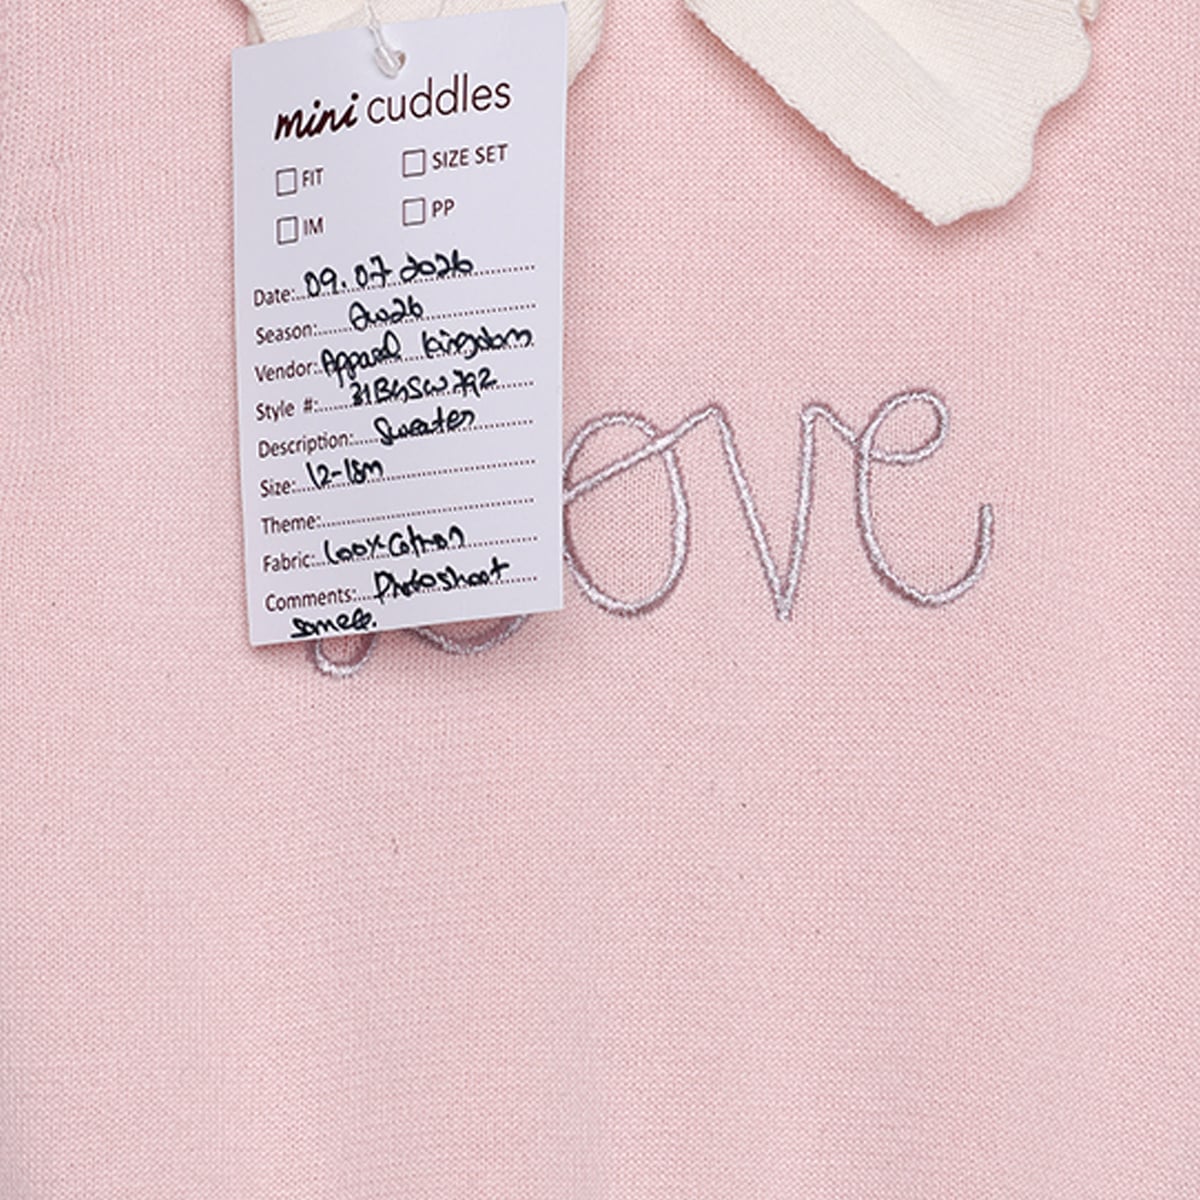 mini cuddles
FIT
SIZE SET
IM
PP
Date: 09.07.2026
Season: AW26
Vendor: Apparel kingdom
Style #: 31BGSW792
Description: Sweater
Size: 12-18m
Theme:
Fabric: 100% Cotton
Comments: Photoshoot
ove